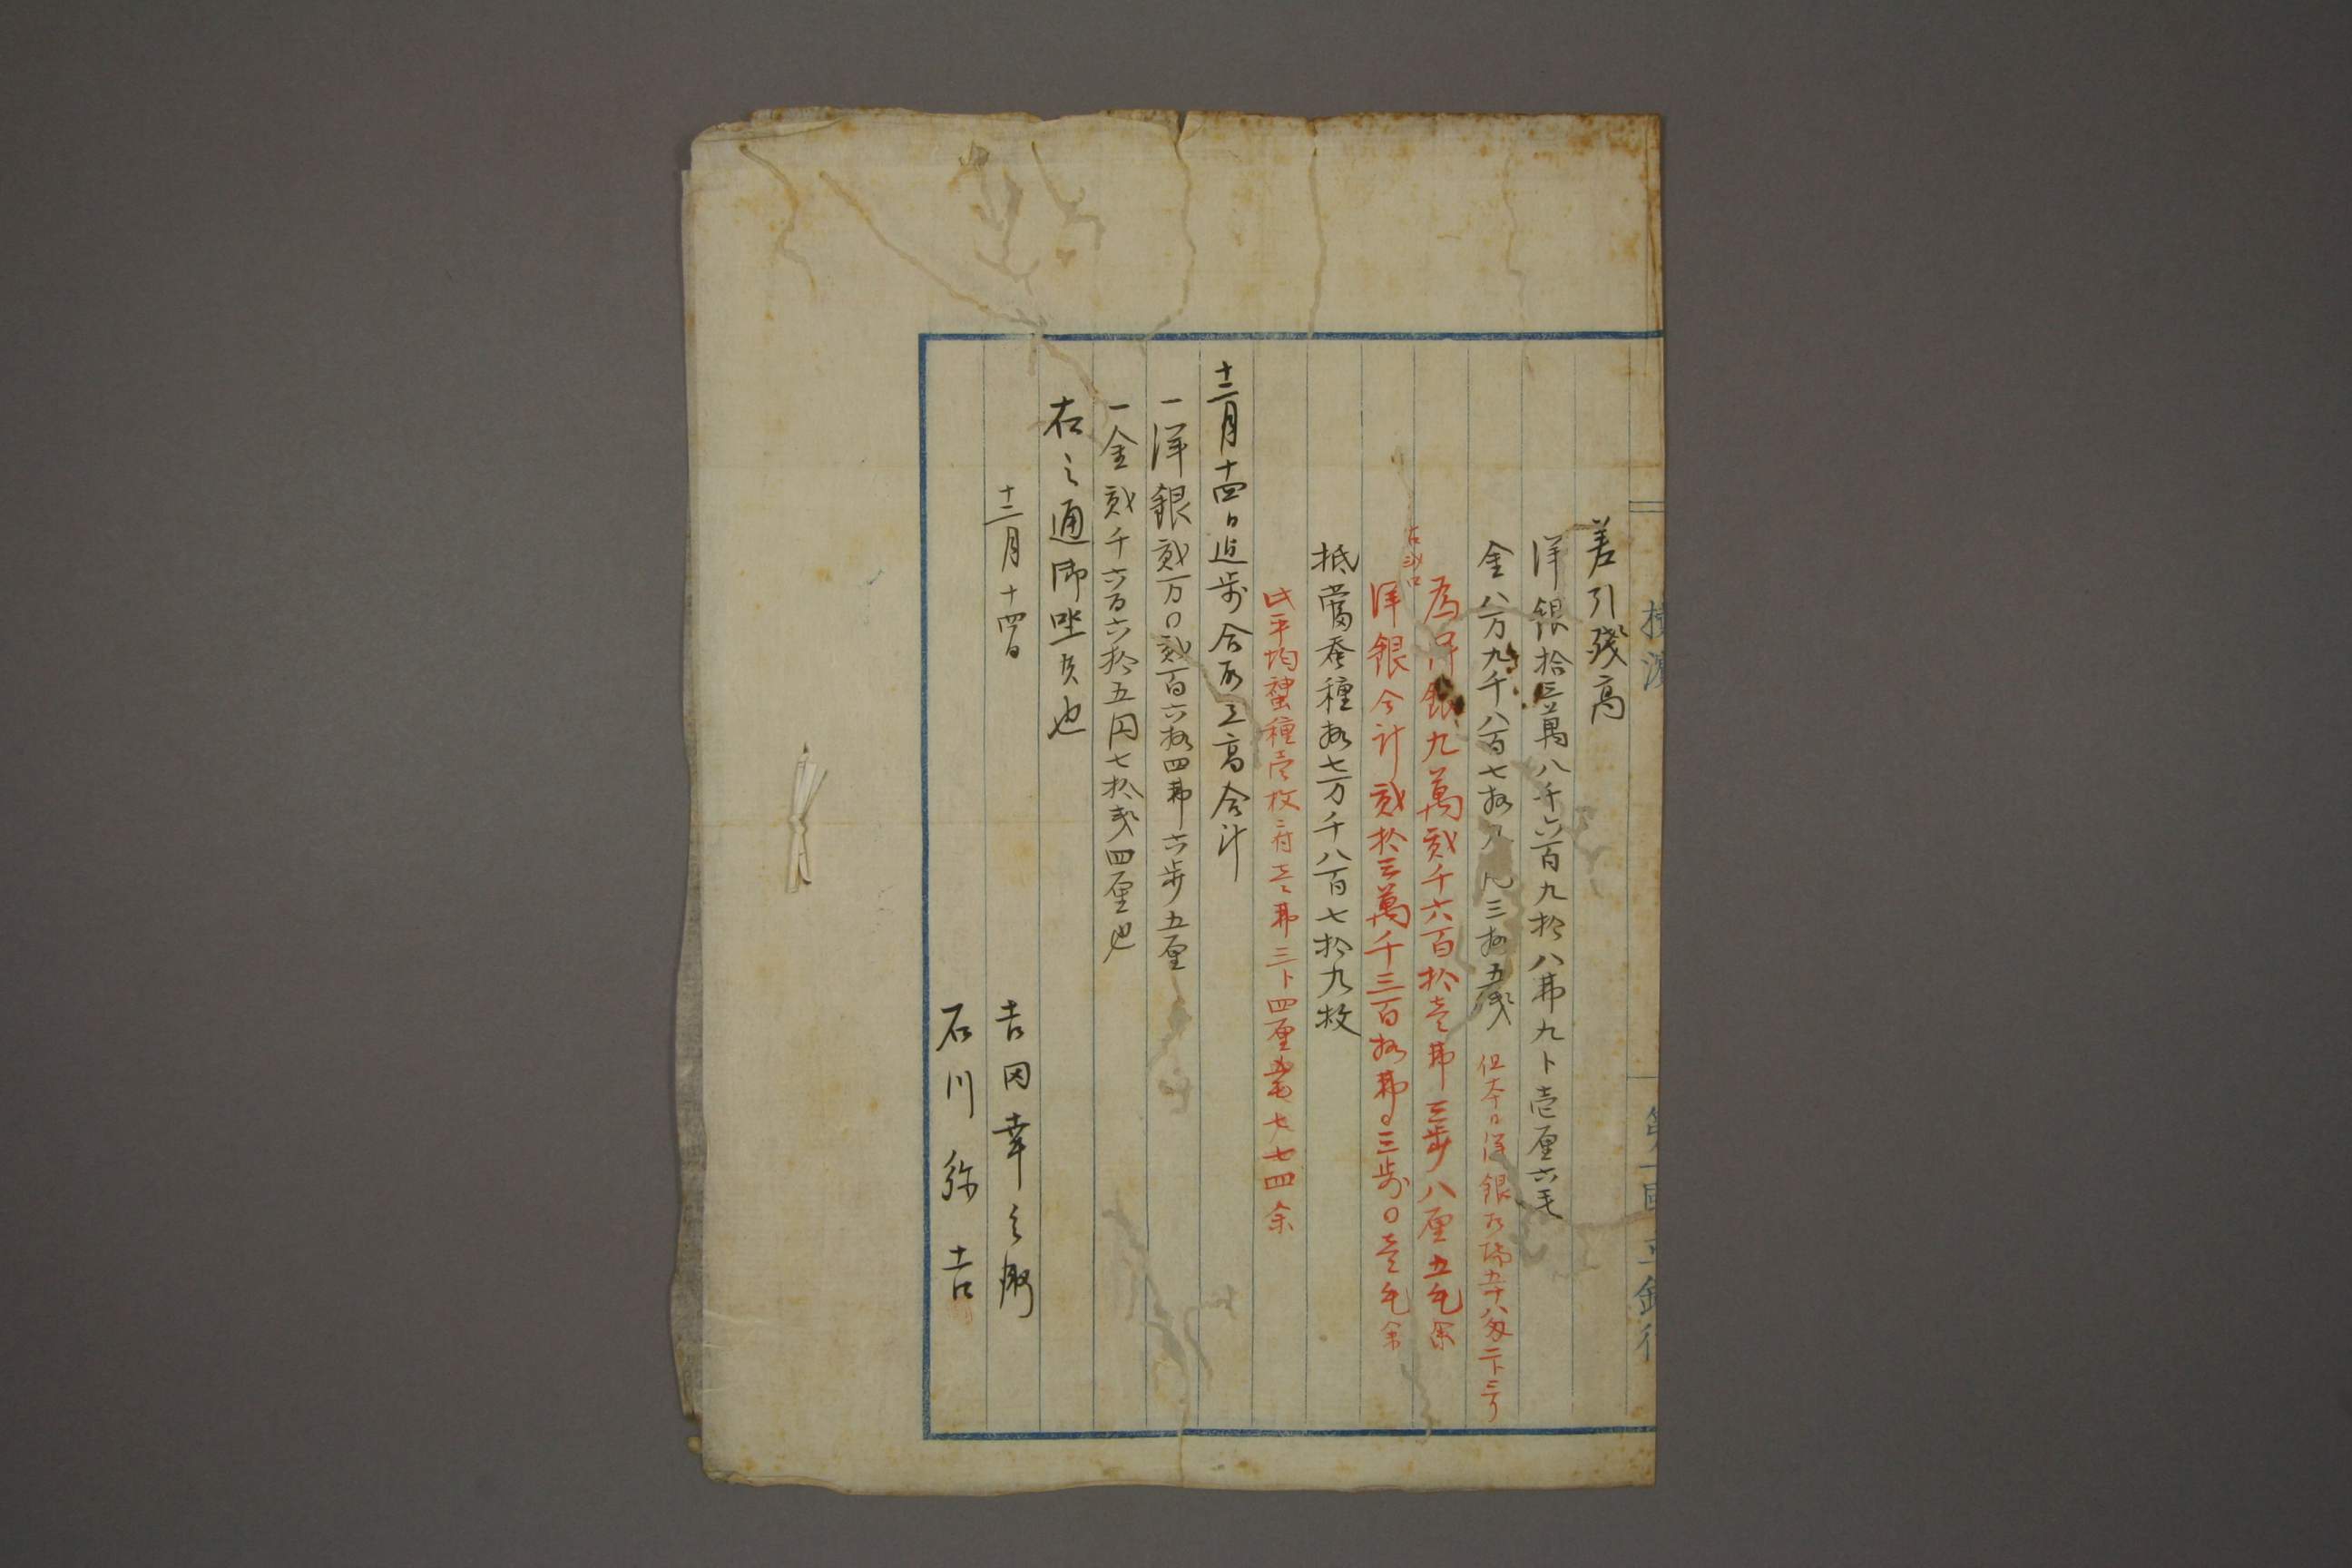 横濱 第二國立銀行
差引残高
洋銀拾三萬八千六百九拾八弗九卜壱厘六毛
金八万九千八百七拾 円三拾五銭 但本日洋銀相場五十八匁二卜三り
為洋銀九萬貮千六百拾壱弗三歩八厘五毛余
右貮口
洋銀合計貮拾三萬千三百拾弗〇三歩〇壱毛余
抵當蚕種拾七万千八百七拾九枚
此平均蚕種壱枚ニ付壱弗三卜四厘五毛七七四余
十二月十四日迄歩合取立高合計
一洋銀貮万〇貮百六拾四弗六歩五厘
一金貮千六百六拾五円七拾銭四厘也
右之通御坐候也
十二月十四日
吉田幸之助
石川弥吉